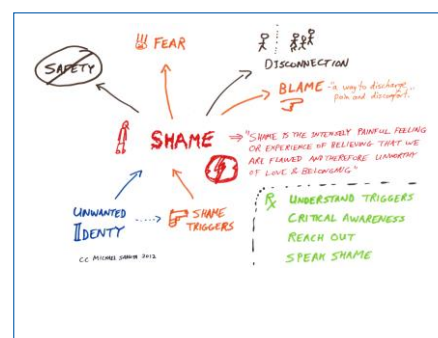 FEAR
SAFETY
DISCONNECTION
BLAME - "a way to discharge
pain and discomfort."
SHAME ⇒ "SHAME IS THE INTENSELY PAINFUL FEELING
OR EXPERIENCE OF BELIEVING THAT WE
ARE FLAWED AND THEREFORE UNWORTHY
OF LOVE & BELONGING"
UNWANTED
IDENTY
SHAME
TRIGGERS
Rx UNDERSTAND TRIGGERS
CRITICAL AWARENESS
REACH OUT
SPEAK SHAME
CC MICHAEL 2012